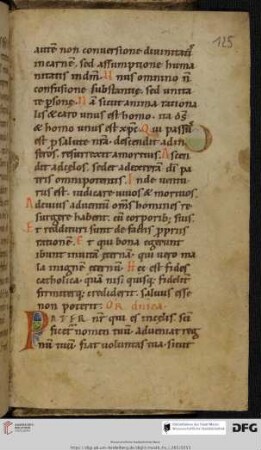 125
autem non conuersione diuinitatis
in carnem, sed assumptione huma
nitatis in dm̄. Unus omnino n̄
confusione substantię, sed unita
te psone. Nā sicut anima rationa
lis & caro unus est homo. ita ds̄
& homo unus est xp̄c. Qui passus
est p salute nrā. descendit ad in
feros, resurrexit a mortuis. Ascen
dit ad cęlos, sedet ad dexterā di pa
tris omnipotentis. Inde uentu
rus est. iudicare uiuos & mortuos.
Ad cuius aduentū oms homines re
surgere habent. cū corporib; suis.
Et reddituri sunt de factis ppriis
rationē. Et qui bona egerunt
ibunt in uitā ęternā. qui uero ma
la in ignē ęternū. Hec est fides
catholica. quā nisi quisq; fidelit
firmiterq; crediderit. saluus esse
non poterit. OR dnica.
PATER nr̄ qui es in cęlis. sci
ficet nomen tuū. adueniat reg
nū tuū. fiat uoluntas tua. sicut
DFG